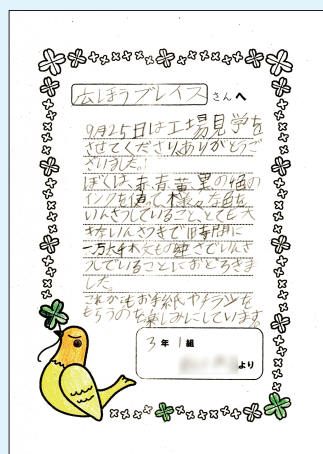 広ほうブレイスさんへ
9月25日は工場見学を
させてくださり、ありがとうご
ざいました。
ぼくは、赤青黄黒の色の
インクを使って様々な色を
いんさつしていること、とても大
きないんさつきで1時間に
一万 の さでいんさ
つしていることにおどろきま
した。
これからもお手紙やチラシを
もらうのを楽しみにしています。
3年1組
より